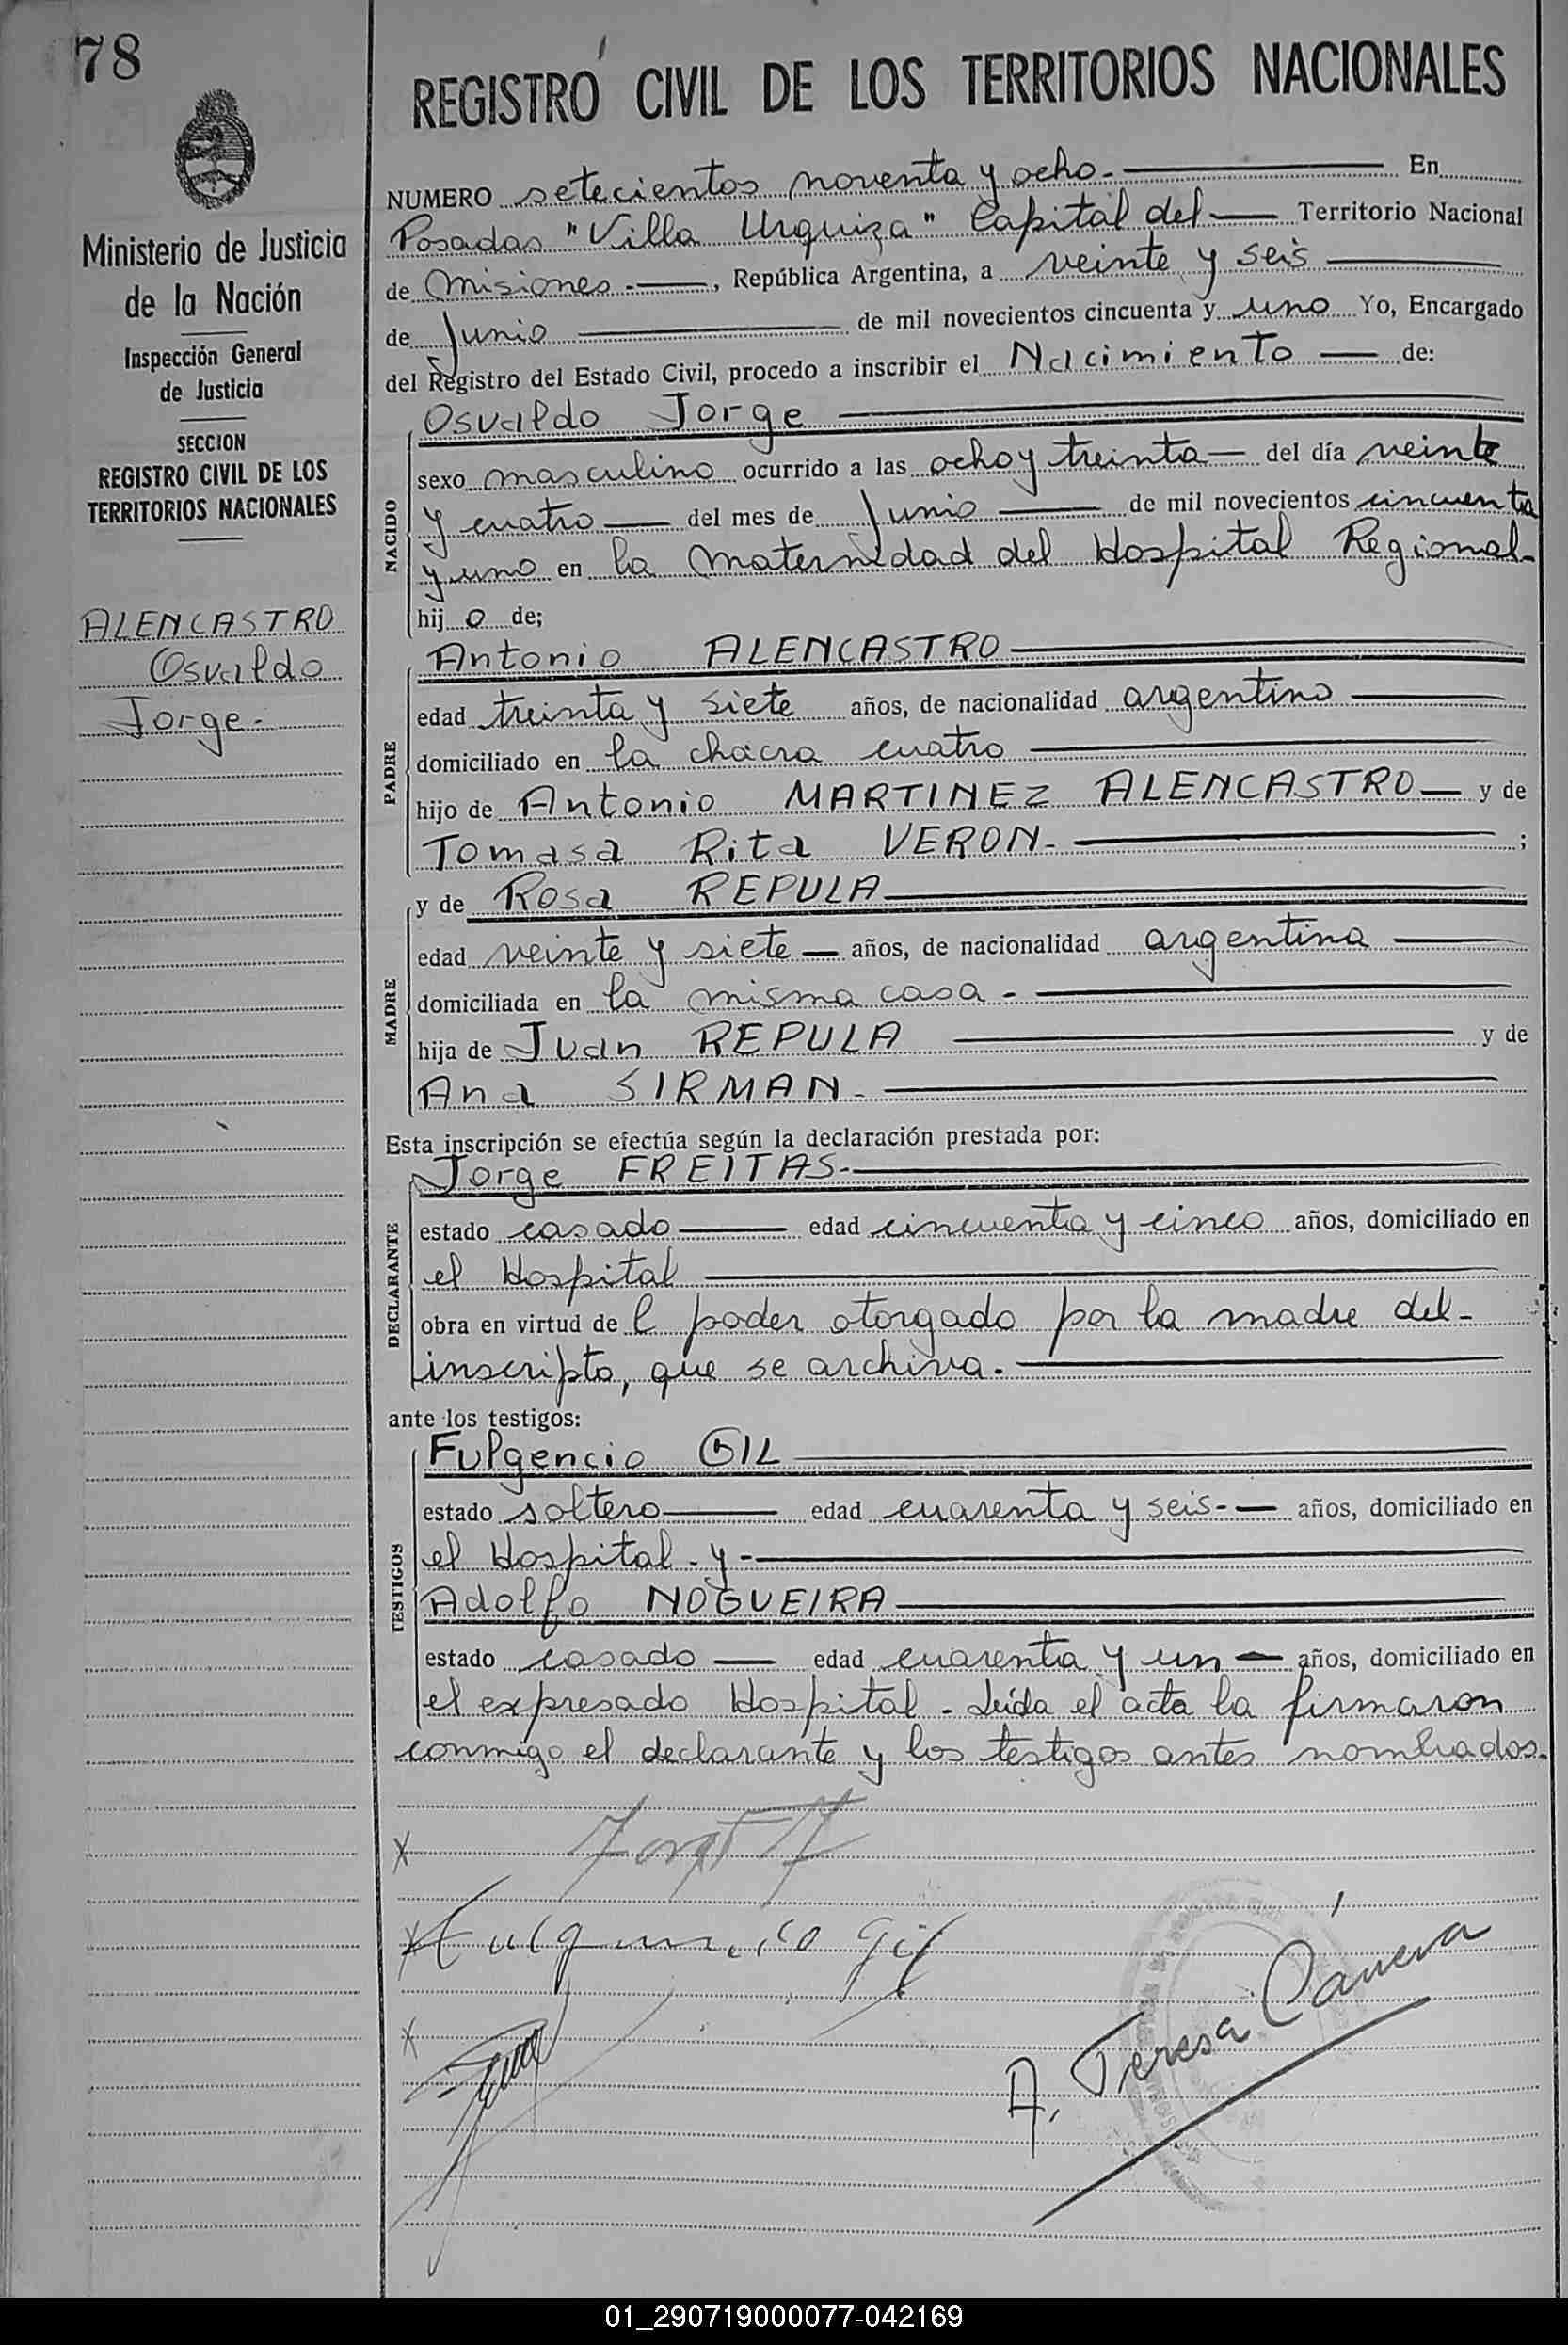 78
REGISTRO CIVIL DE LOS TERRITORIOS NACIONALES
Ministerio de Justicia
de la Nación
Inspección General
de Justicia
SECCION
REGISTRO CIVIL DE LOS
TERRITORIOS NACIONALES
ALENCASTRO
Osvaldo
Jorge.-
NUMERO setecientos noventa y ocho.- En
Posadas "Villa Urquiza" Capital del Territorio Nacional
de Misiones.-, República Argentina, a veinte y seis
de Junio de mil novecientos cincuenta y uno Yo, Encargado
del Registro del Estado Civil, procedo a inscribir el Nacimiento de:
NACIDO
Osvaldo Jorge
sexo masculino ocurrido a las ocho y treinta del día veinte
y cuatro del mes de Junio de mil novecientos cincuenta
y uno en la Maternidad del Hospital Regional-
hijo de;
PADRE
Antonio ALENCASTRO
edad treinta y siete años, de nacionalidad argentino
domiciliado en la chacra cuatro
hijo de Antonio MARTINEZ ALENCASTRO y de
Tomasa Rita VERON.- ;
MADRE
y de Rosa REPULA
edad veinte y siete años, de nacionalidad argentina
domiciliada en la misma casa -
hija de Juan REPULA y de
Ana SIRMAN.
Esta inscripción se efectúa según la declaración prestada por:
DECLARANTE
Jorge FREITAS.-
estado casado edad cincuenta y cinco años, domiciliado en
el Hospital
obra en virtud del poder otorgado por la madre del-
inscripto, que se archiva.-
ante los testigos:
TESTIGOS
Fulgencio GIL
estado soltero edad cuarenta y seis- años, domiciliado en
el Hospital - y -
Adolfo NOGUEIRA
estado casado edad cuarenta y un años, domiciliado en
el expresado Hospital - Leída el acta la firmaron
conmigo el declarante y los testigos antes nombrados.
Fulgencio Gil
A. Teresa Cáneva
01_290719000077-042169